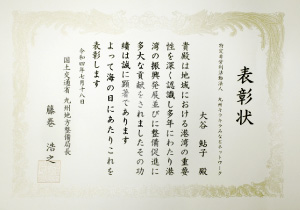 表彰状
特定非営利活動法人 九州キラキラみなとネットワーク
大谷 鮎子 殿
貴殿は地域における港湾の重要
性を深く認識し多年にわたり港
湾の振興発展並びに整備促進に
多大な貢献をされましたその功
績は誠に顕著であります
よって海の日にあたりこれを
表彰します
令和四年七月十八日
国土交通省 九州地方整備局長
藤巻 浩之